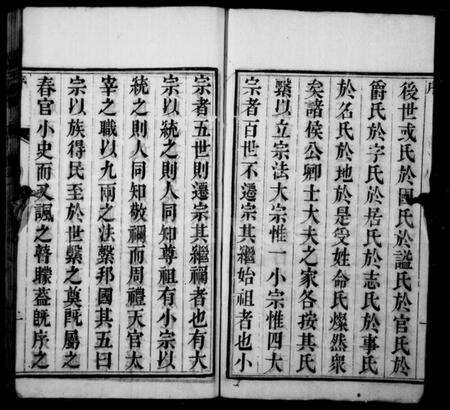 序
後世或氏於國氏於謚氏於官氏於
爵氏於字氏於居氏於志氏於事氏
於名氏於地於是受姓命氏燦然衆
矣諸侯公卿士大夫之家各按其氏
繫以立宗法大宗惟一小宗惟四大
宗者百世不遷宗其繼始祖者也小
宗者五世則遷宗其繼禰者也有大
宗以統之則人同知尊祖有小宗以
統之則人同知敬禰而周禮天官太
宰之職以九兩之法繫邦國其五曰
宗以族得民至於世繫之奠既屬之
春官小史而又諷之瞽矇蓋旣序之